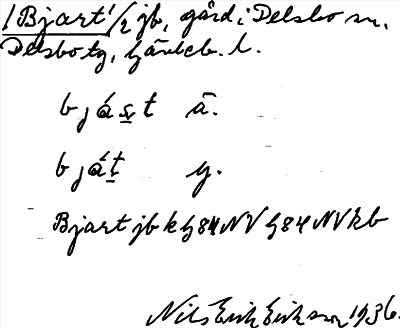 /Bjart/ 2 jb, gård i Delsbo sn,
Delsbo tg, Gävleb. l.
bjás̲t ā.
bját̲ y.
Bjart jb k G84NV G84NV kb
Nils Erik Eriksson 1936.